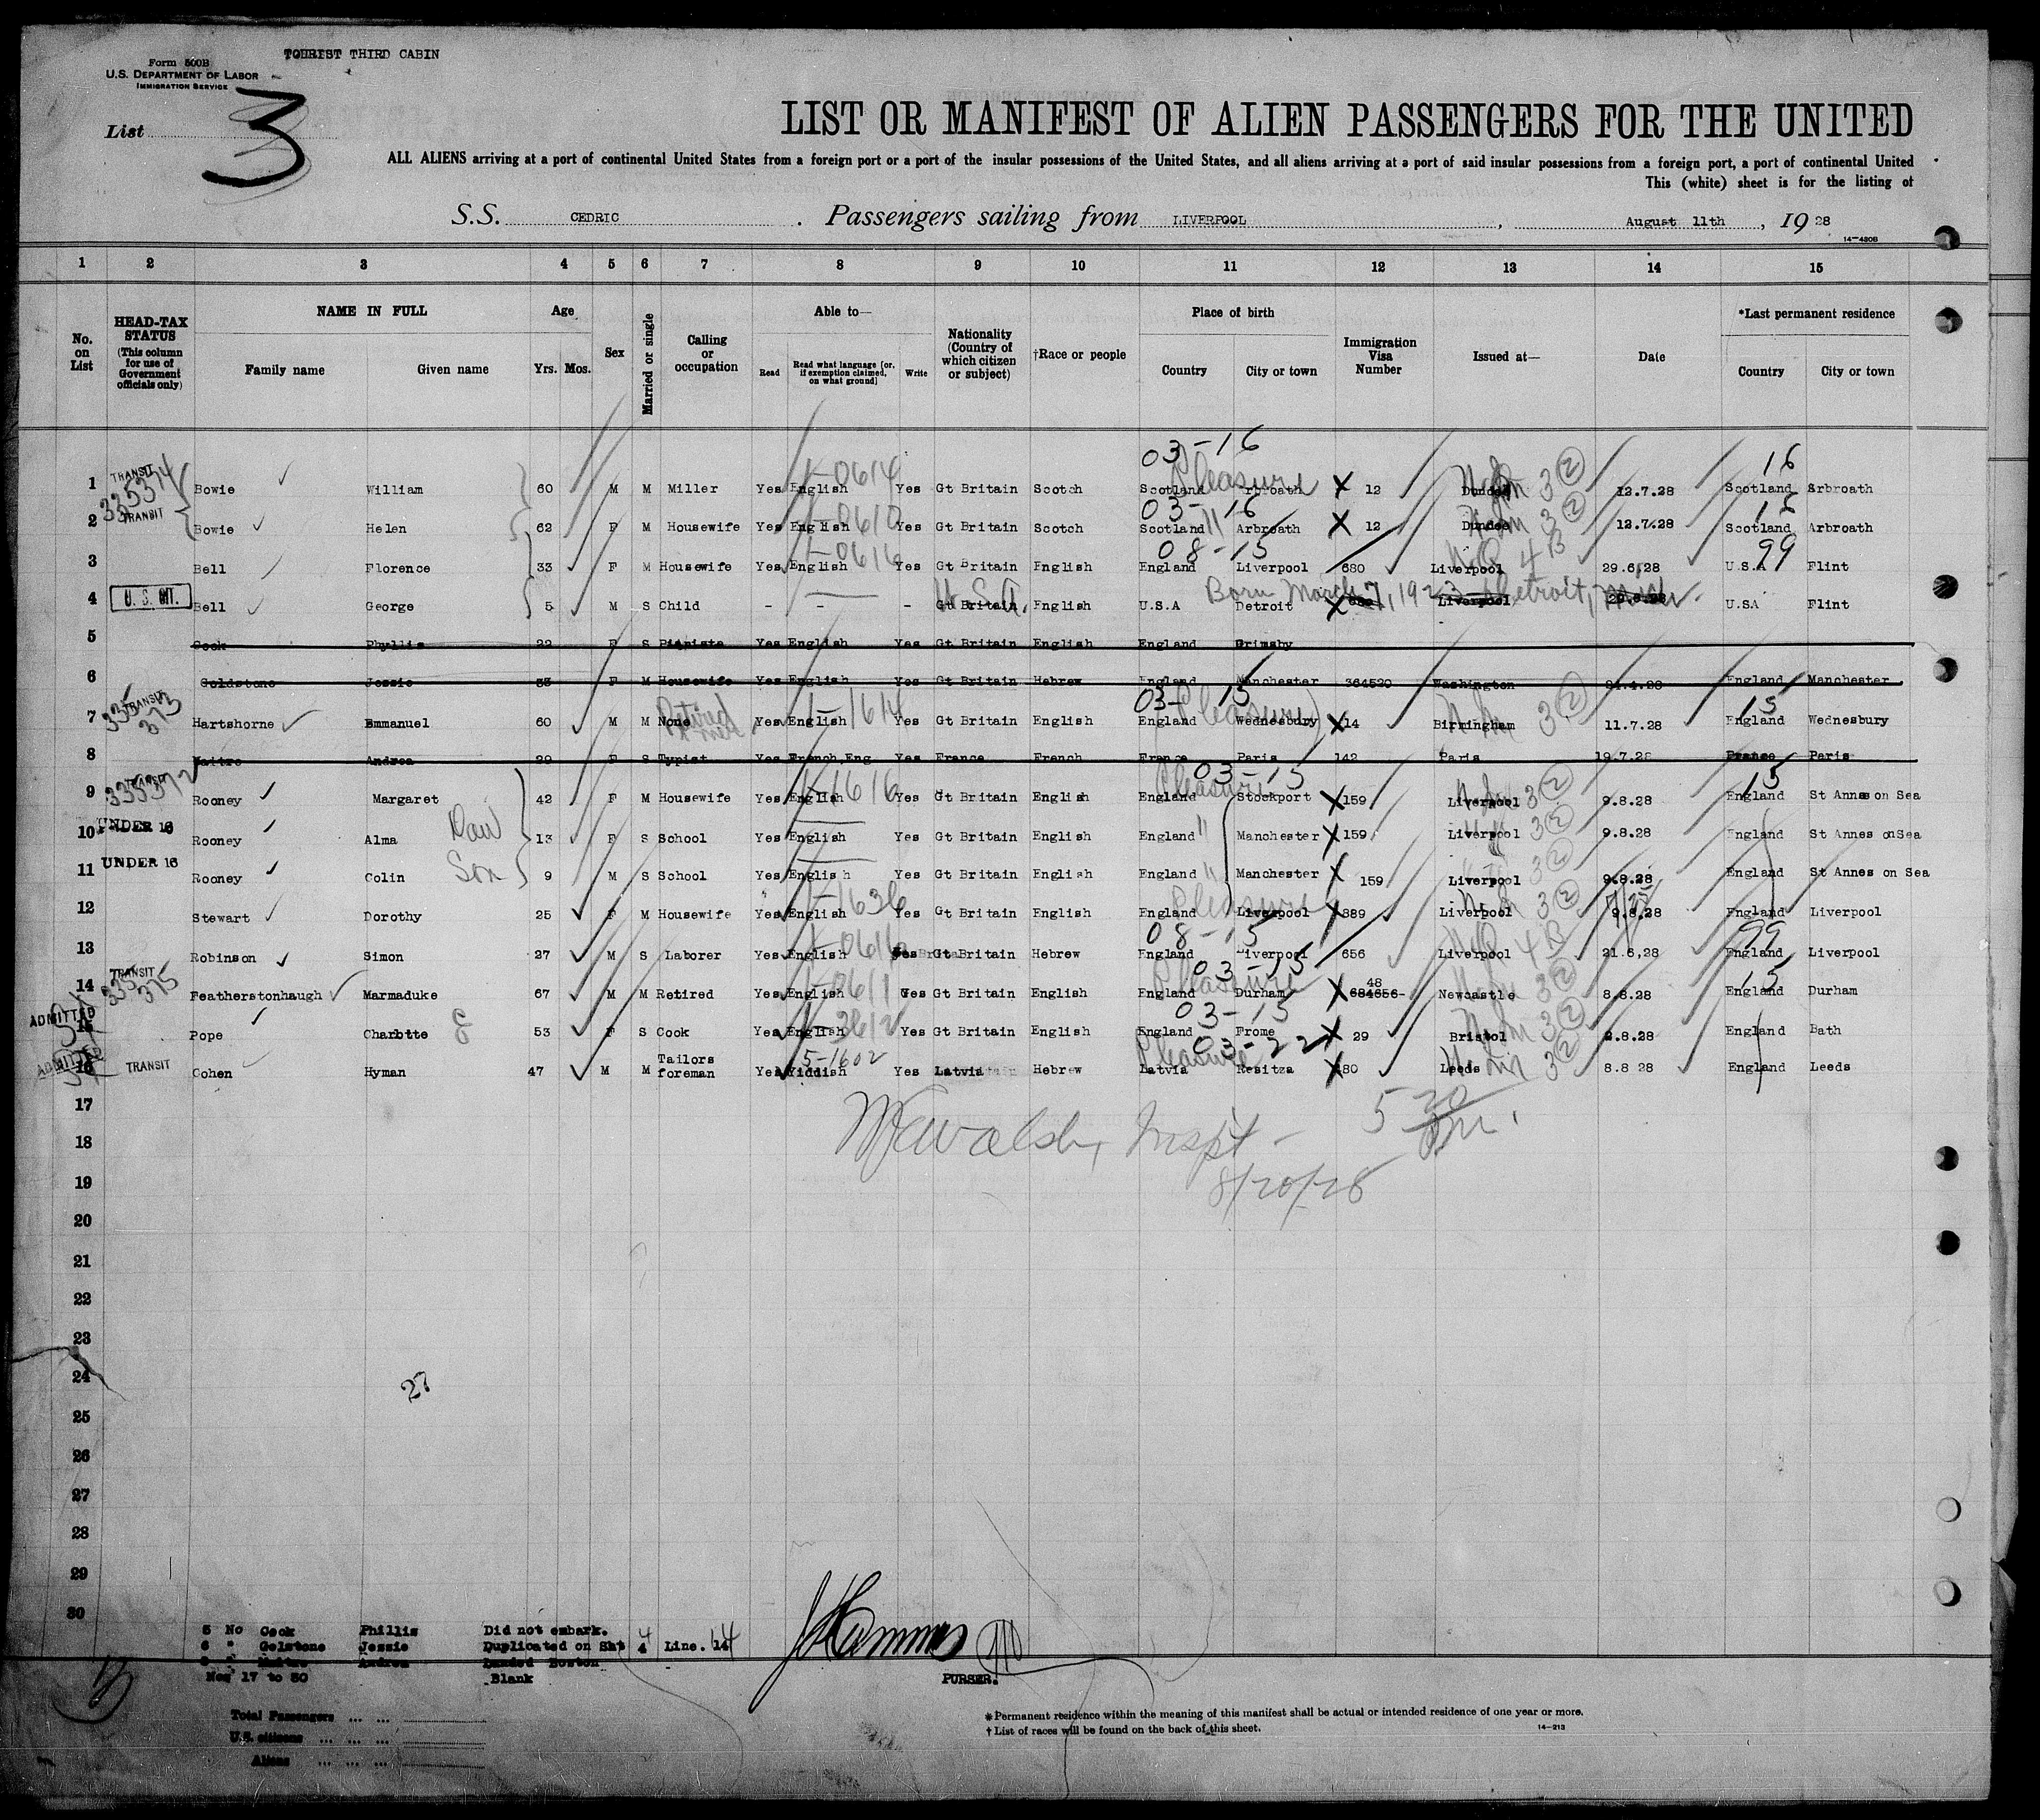 TOURIST THIRD CABIN
Form 500B
U.S. DEPARTMENT OF LABOR
IMMIGRATION SERVICE
List 3
LIST OR MANIFEST OF ALIEN PASSENGERS FOR THE UNITED
ALL ALIENS arriving at a port of continental United States from a foreign port or a port of the insular possessions of the United States, and all aliens arriving at a port of said insular possessions from a foreign port, a port of continental United
This (white) sheet is for the listing of
S.S. CEDRIC . Passengers sailing from LIVERPOOL , August 11th , 19 28
14-430B
1 2 3 4 5 6 7 8 9 10 11 12 13 14 15
No. on List
HEAD-TAX STATUS (This column for use of Government officials only)
NAME IN FULL Family name Given name
Age Yrs. Mos.
Sex
Married or single
Calling or occupation
Able to— Read Read what language [or, if exemption claimed, on what ground] Write
Nationality (Country of which citizen or subject)
†Race or people
Place of birth Country City or town
Immigration Visa Number
Issued at—
Date
*Last permanent residence Country City or town
03-16 16
1 TRANSIT 335374 Bowie William 60 M M Miller Yes English 1-0614 Yes Gt Britain Scotch Scotland Pleasure Arbroath X 12 Dundee 3 2 12.7.28 Scotland Arbroath
03-16 16
2 TRANSIT Bowie Helen 62 F M Housewife Yes English 1-0610 Yes Gt Britain Scotch Scotland " Arbroath X 12 Dundee 3 2 12.7.28 Scotland Arbroath
08-15 99
3 Bell Florence 33 F M Housewife Yes English 1-0616 Yes Gt Britain English England Liverpool 680 Liverpool 4B 29.6.28 U.S.A Flint
4 U. S. CIT. Bell George 5 M S Child - - - Gt Britain U.S.A. English U.S.A Detroit X Liverpool U.SA Flint
Born March 7, 1923 Detroit, Mich.
5 Cock Phyllis 22 F S Pianiste Yes English Yes Gt Britain English England Grimsby
6 Goldstone Jessie 33 F M Housewife Yes English Yes Gt Britain Hebrew England Manchester 364520 Washington England Manchester
03-15 15
7 TRANSIT 335373 Hartshorne Emmanuel 60 M M None Retired Yes English 1-1614 Yes Gt Britain English England Pleasure Wednesbury X 14 Birmingham 3 2 11.7.28 England Wednesbury
8 Maitre Andrea 29 F S Typist Yes French, Eng Yes France French France Paris 142 Paris 19.7.28 France Paris
03-15 15
9 TRANSIT 335372 Rooney Margaret 42 F M Housewife Yes English 1-1616 Yes Gt Britain English England Pleasure Stockport X 159 Liverpool 3 2 9.8.28 England St Annes on Sea
10 UNDER 16 Rooney Alma Dau 13 F S School Yes English Yes Gt Britain English England " Manchester X 159 Liverpool 3 2 9.8.28 England St Annes onSea
11 UNDER 16 Rooney Colin Son 9 M S School Yes English Yes Gt Britain English England " Manchester X 159 Liverpool 3 2 9.8.28 England St Annes on Sea
12 Stewart Dorothy 25 F M Housewife Yes English 1-1636 Yes Gt Britain English England Pleasure Liverpool X 889 Liverpool 3 2 9.8.28 England Liverpool
08-15 99
13 Robinson Simon 27 M S Laborer Yes English 1-0616 Yes Gt Britain Hebrew England Liverpool 656 Liverpool 4B 21.6.28 England Liverpool
03-15 15
14 TRANSIT 335375 Featherstonhaugh Marmaduke 67 M M Retired Yes English 1-0611 Yes Gt Britain English England Pleasure Durham X 48 684656- Newcastle 3 2 8.8.28 England Durham
03-15
15 ADMITTED Pope Charbtte E 53 F S Cook Yes English 1-3612 Yes Gt Britain English England Frome X 29 Bristol 3 2 2.8.28 England Bath
03-22
16 ADMITTED TRANSIT Cohen Hyman 47 M M Tailors foreman Yes Yiddish 5-1602 Yes Latvia Hebrew Latvia Pleasure Resitza X 80 Leeds 3 2 8.8 28 England Leeds
17
18
Walsh, Inspt - 5 20 pm.
19
8/20/28
20
21
22
23
24
27
25
26
27
28
29
30
5 No Cock Phillis Did not embark.
6 " Gelstone Jessie Duplicated on Sht 4 Line. 14
8 " Maitre Andrea Landed Boston
Nos 17 to 30 Blank
PURSER.
Total Passengers ... ...
U.S. citizens ... ... ...
Aliens ... ... ...
*Permanent residence within the meaning of this manifest shall be actual or intended residence of one year or more.
†List of races will be found on the back of this sheet.
14-213